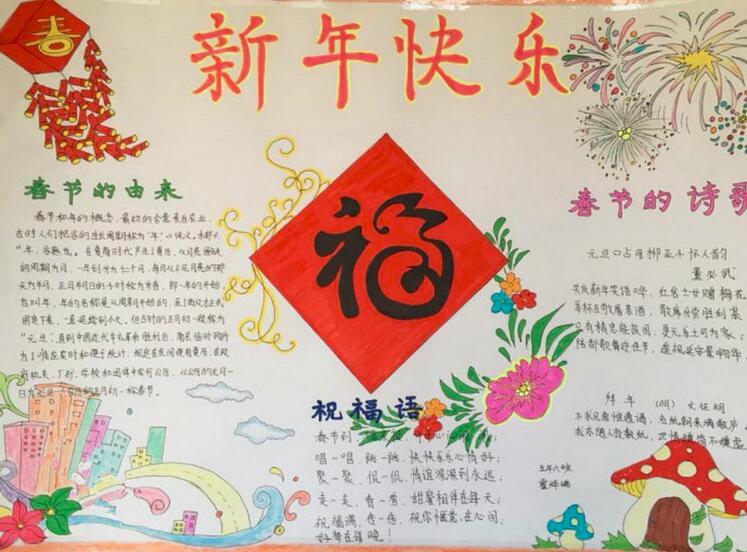 春
新年快乐
春节的由来
春节和年的概念，最初的含意来自农业，
古时人们把谷的生长周期称为“年”，《说文·禾部》：
“年，谷熟也。在夏商时代产生了夏历，以月亮圆缺
的周期为月，一年划分为十二个月，每月以不见月亮的那
天为朔，正月朔日的子时称为岁首，即一年的开始，
也叫年，年的名称是从周朝开始的，至了西汉才正式
固定下来，一直延续到今天。但古时的正月初一被称为
“元旦”，直到中国近代辛亥革命胜利后，南京临时政府
为了顺应农时和便于统计，规定在民间使用夏历，在政
府机关、厂矿、学校和团体中实行公历，以公历的元月一
日为元旦，农历的正月初一称春节。
福
祝福语
春节到
唱一唱，跳一跳，快快乐乐心情好；
聚一聚，侃一侃，情谊深深到永远；
走一走，看一看，甜蜜相伴在每天；
祝福满，
好梦在每晚！
春节的诗歌
元旦口占用柳亚子怀人韵
董必武
共庆新年笑语哗，红岩士女赠梅花
举杯互敬屠苏酒，散席分尝胜利茶
只有精忠能报国，更无乐土可为家
陪都歌舞迎佳节，遥祝延安景物华
拜年 （明） 文征明
不求见面惟通谒，名纸朝来满敝庐
我亦随人投数纸，世情嫌简不嫌虚